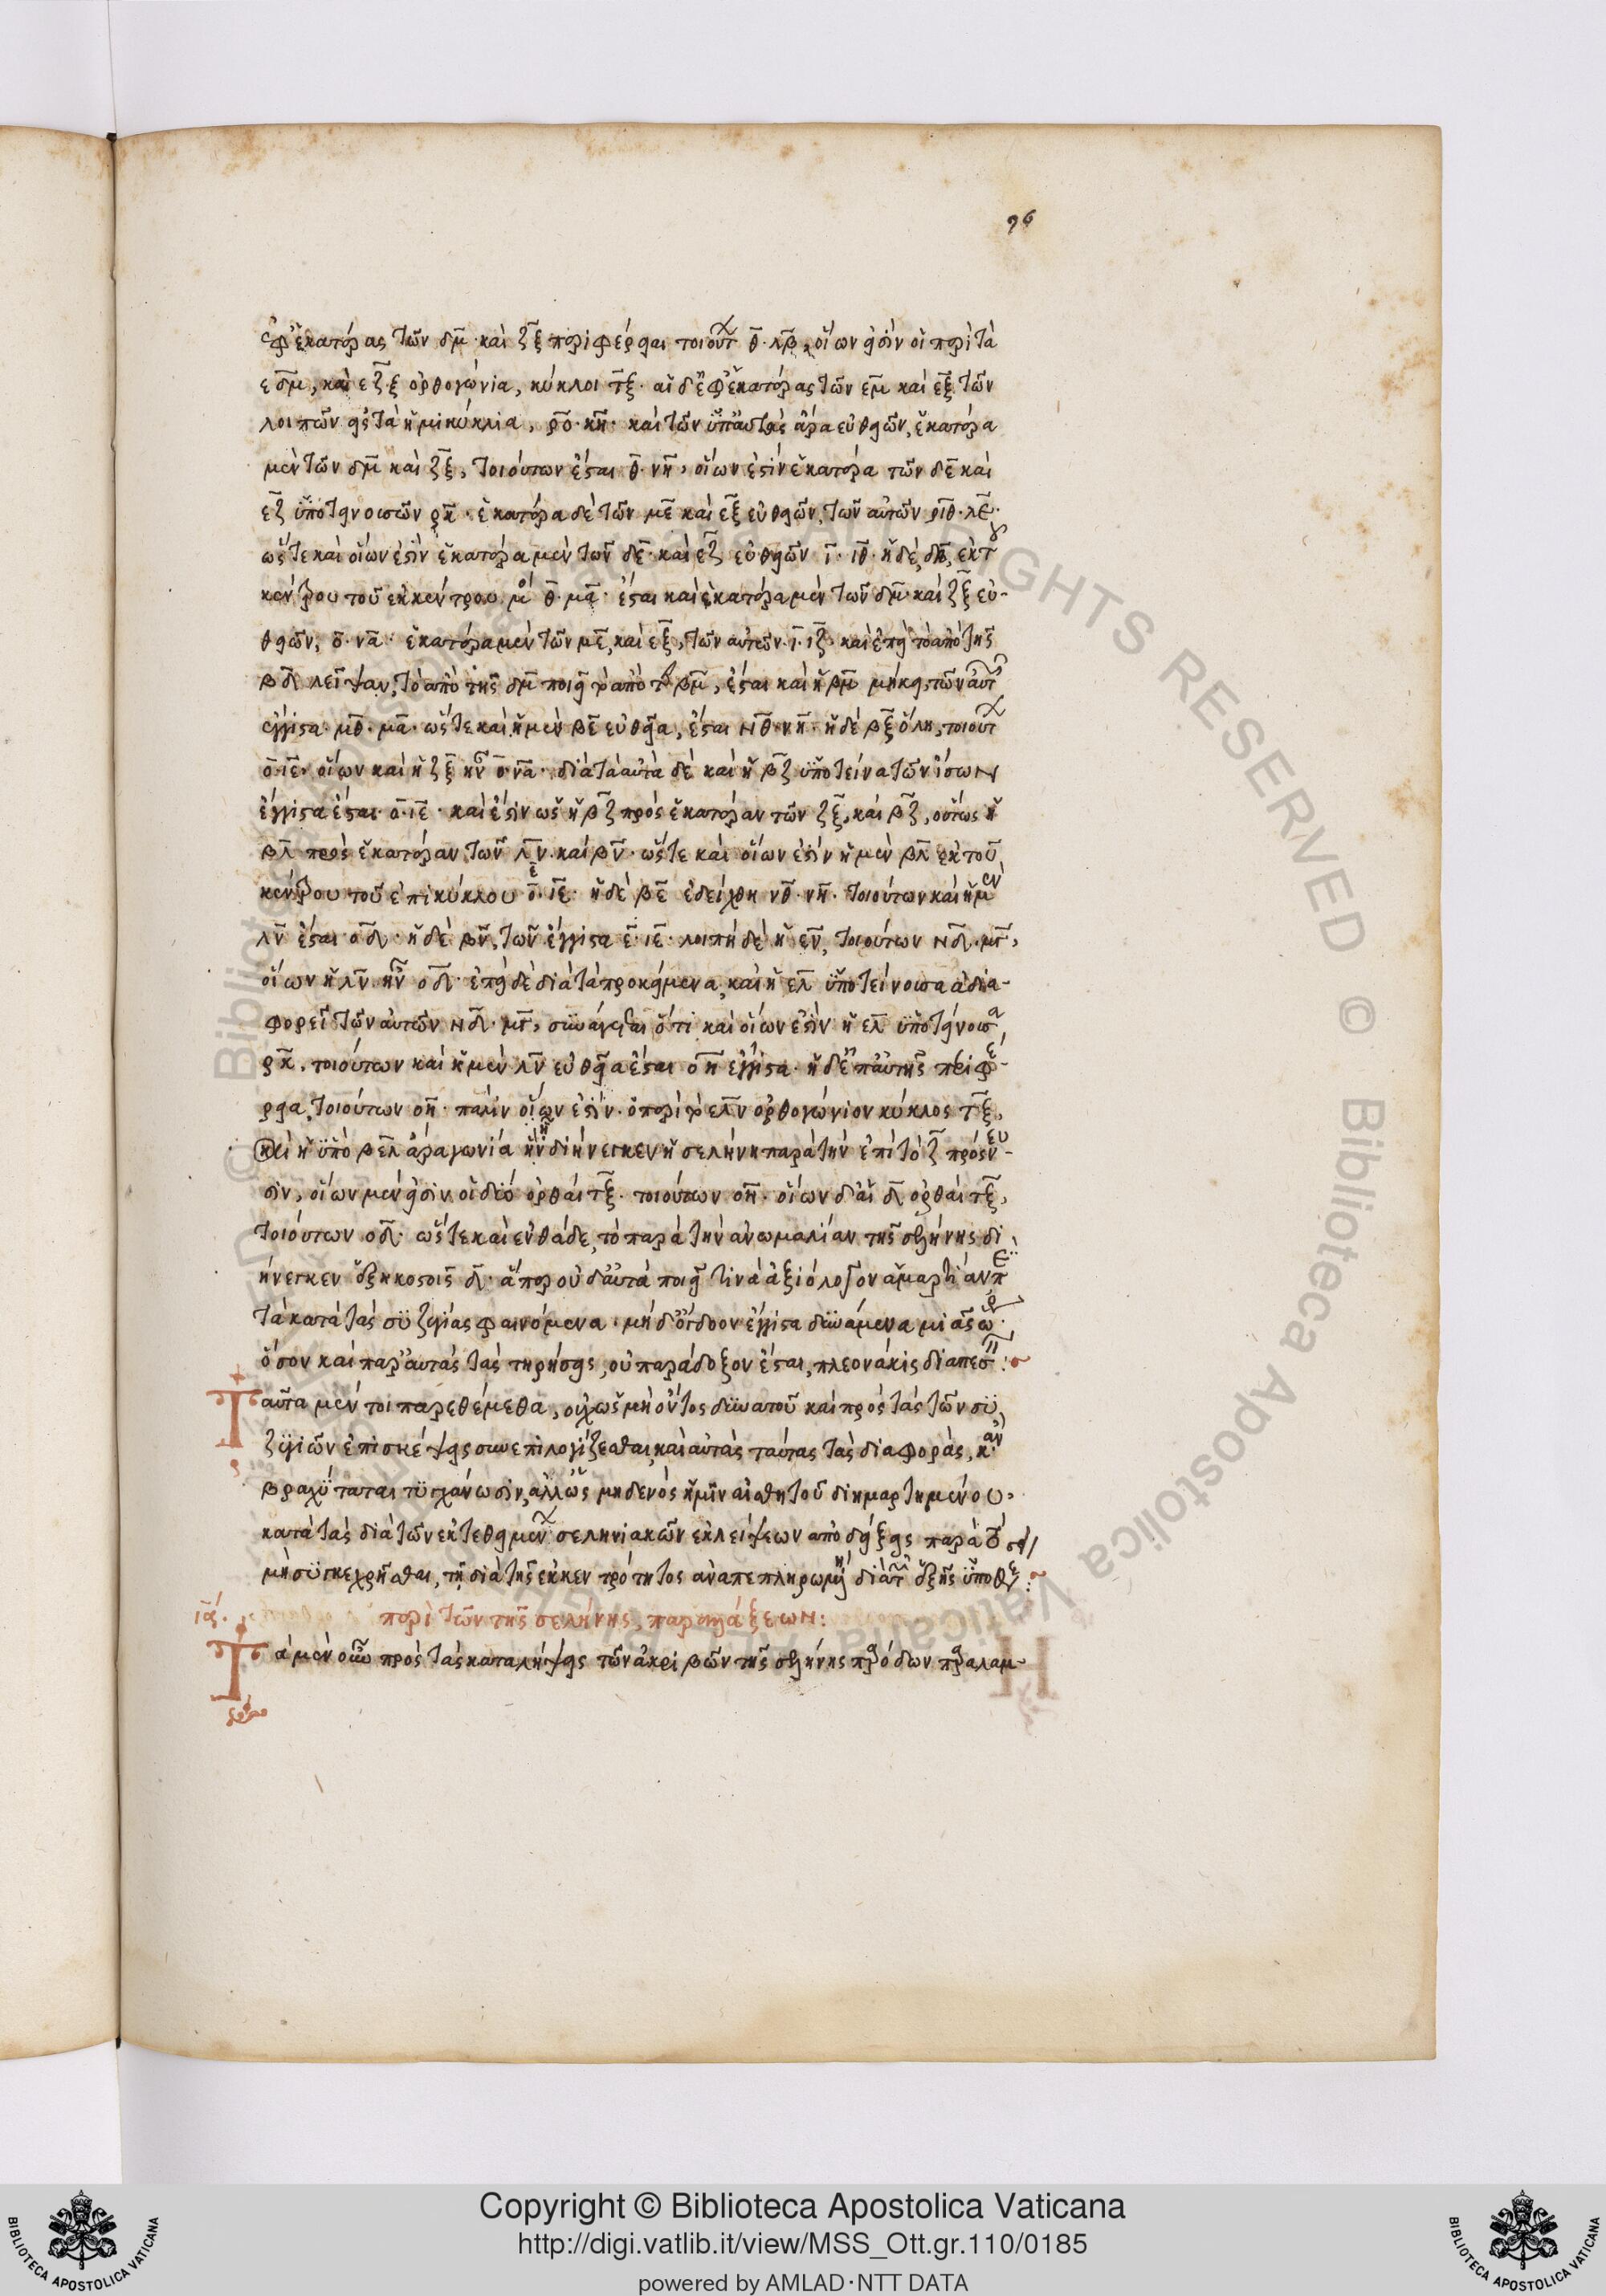 96
ἐφ' ἑκατέρας τῶν δμ καὶ ζξ περιφέρειαι τοιούτ θ λβ, οἵων εἰσὶν οἱ περὶ τὰ
εδμ, καὶ εζξ ὀρθογώνια, κύκλοι τξ· αἱ δὲ ἐφ' ἑκατέρας τῶν εμ καὶ εξ τῶν
λοιπῶν εἰς τὰ ἡμικύκλια, ρο κη· καὶ τῶν ὑπ' αὐτὰς ἄρα εὐθειῶν, ἑκατέρα
μὲν τῶν δμ καὶ ζξ, τοιούτων ἔσται θ νη, οἵων ἐστὶν ἑκατέρα τῶν δε καὶ
εζ ὑποτεινουσῶν ρκ· ἑκατέρα δὲ τῶν με καὶ εξ εὐθειῶν, τῶν αὐτῶν ριθ λε·
ὥστε καὶ οἵων ἐστὶν ἑκατέρα μὲν τῶν δε καὶ εζ εὐθειῶν ι ιθ· ἡ δὲ δβ, ἐκ τ
κέντρου τοῦ ἐκκέντρου μθ μα· ἔσται καὶ ἑκατέρα μὲν τῶν δμ καὶ ζξ εὐ-
θειῶν, ο να· ἑκατέρα μὲν τῶν με, καὶ εξ, τῶν αὐτῶν ι ιζ· καὶ ἐπεὶ τὸ ἀπὸ τῆς
βδ λεῖψαν, τὸ ἀπὸ τῆς δμ ποιεῖ τὸ ἀπὸ τ βμ, ἔσται καὶ ἡ βμ μήκει τῶν αὐτ
ἔγγιστα μθ μα· ὥστε καὶ ἡ μὲν βε εὐθεῖα, ἔσται νθ νη· ἡ δὲ βξ ὅλη, τοιούτ
ο ιε· οἵων καὶ ἡ ζξ ἦν ο να· διὰ τὰ αὐτὰ δὲ καὶ ἡ βζ ὑποτείνα τῶν ἴσων
ἔγγιστα ἔσται ο ιε· καὶ ἔστιν ὡς ἡ βζ πρὸς ἑκατέραν τῶν ζξ, καὶ βζ, οὕτως ἡ
βλ πρὸς ἑκατέραν τῶν λν καὶ βν· ὥστε καὶ οἵων ἐστὶν ἡ μὲν βλ ἐκ τοῦ
κέντρου τοῦ ἐπικύκλου ε ιε· ἡ δὲ βε ἐδείχθη νθ νη· τοιούτων καὶ ἡ μὲν
λν ἔσται ο δ· ἡ δὲ βν, τῶν ἔγγιστα ε ιε· λοιπὴ δὲ ἡ εν, τοιούτων νδ μγ,
οἵων ἡ λν ἦν ο δ· ἐπεὶ δὲ διὰ τὰ προκείμενα, καὶ ἡ ελ ὑποτείνουσα ἀδια-
φορεῖ τῶν αὐτῶν νδ μγ, συνάγεται ὅτι καὶ οἵων ἐστὶν ἡ ελ ὑποτείνουσα
ρκ, τοιούτων καὶ ἡ μὲν λν εὐθεῖα ἔσται ο η ἔγγιστα· ἡ δὲ ἐπ' αὐτῆς περιφέ-
ρεια, τοιούτων ο η· πάλιν οἵων ἐστὶν ὁ περὶ τὸ ελν ὀρθογώνιον κύκλος τξ,
καὶ ἡ ὑπὸ βελ ἄρα γωνία ἣν διήνεγκεν ἡ σελήνη παρὰ τὴν ἐπὶ τὸ ζ πρόσνευ-
σιν, οἵων μέν εἰσιν οἱ δύο ὀρθαὶ τξ τοιούτων ο η· οἵων δ' αἱ δ ὀρθαὶ τξ,
τοιούτων ο δ· ὥστε καὶ ἐνθάδε, τὸ παρὰ τὴν ἀνωμαλίαν τῆς σελήνης δι
ήνεγκεν ἑξηκοστοῖς δ· ἅπερ οὐδ' αὐτὰ ποιεῖ τινὰ ἀξιόλογον ἁμαρτίαν π
τὰ κατὰ τὰς συζυγίας φαινόμενα· μηδ' ὄγδοον ἔγγιστα δυνάμενα μιᾶς ὥρ
ὅσον καὶ παρ' αὐτὰς τὰς τηρήσεις, οὐ παράδοξον ἔσται, πλεονάκις διαπεσ
Ταῦτα μέντοι παρεθέμεθα, οὐχ ὡς μὴ ὄντος δυνατοῦ καὶ πρὸς τὰς τῶν συ
ζυγιῶν ἐπισκέψεις συνεπιλογίζεσθαι, καὶ αὐτὰς ταύτας τὰς διαφοράς, κἂν
βραχύταται τυγχάνωσιν, ἀλλ' ὡς μηδενὸς ἡμῖν αἰσθητοῦ διημαρτημένου,
κατὰ τὰς διὰ τῶν ἐκτεθειμέν σεληνιακῶν ἐκλείψεων ἀποδείξεις παρὰ τὸ
μὴ συγκεχρῆσθαι, τῇ διὰ τῆς ἐκκεντρότητος ἀναπεπληρωμένῃ διὰ τ ἑξῆς ὑποθε
ια. περὶ τῶν τῆς σελήνης, παραλλάξεων:
Τὰ μὲν οὖν πρὸς τὰς καταλήψεις τῶν ἀκριβῶν τῆς σελήνης παρόδων παραλαμ-
Copyright © Biblioteca Apostolica Vaticana
http://digi.vatlib.it/view/MSS_Ott.gr.110/0185
powered by AMLAD·NTT DATA